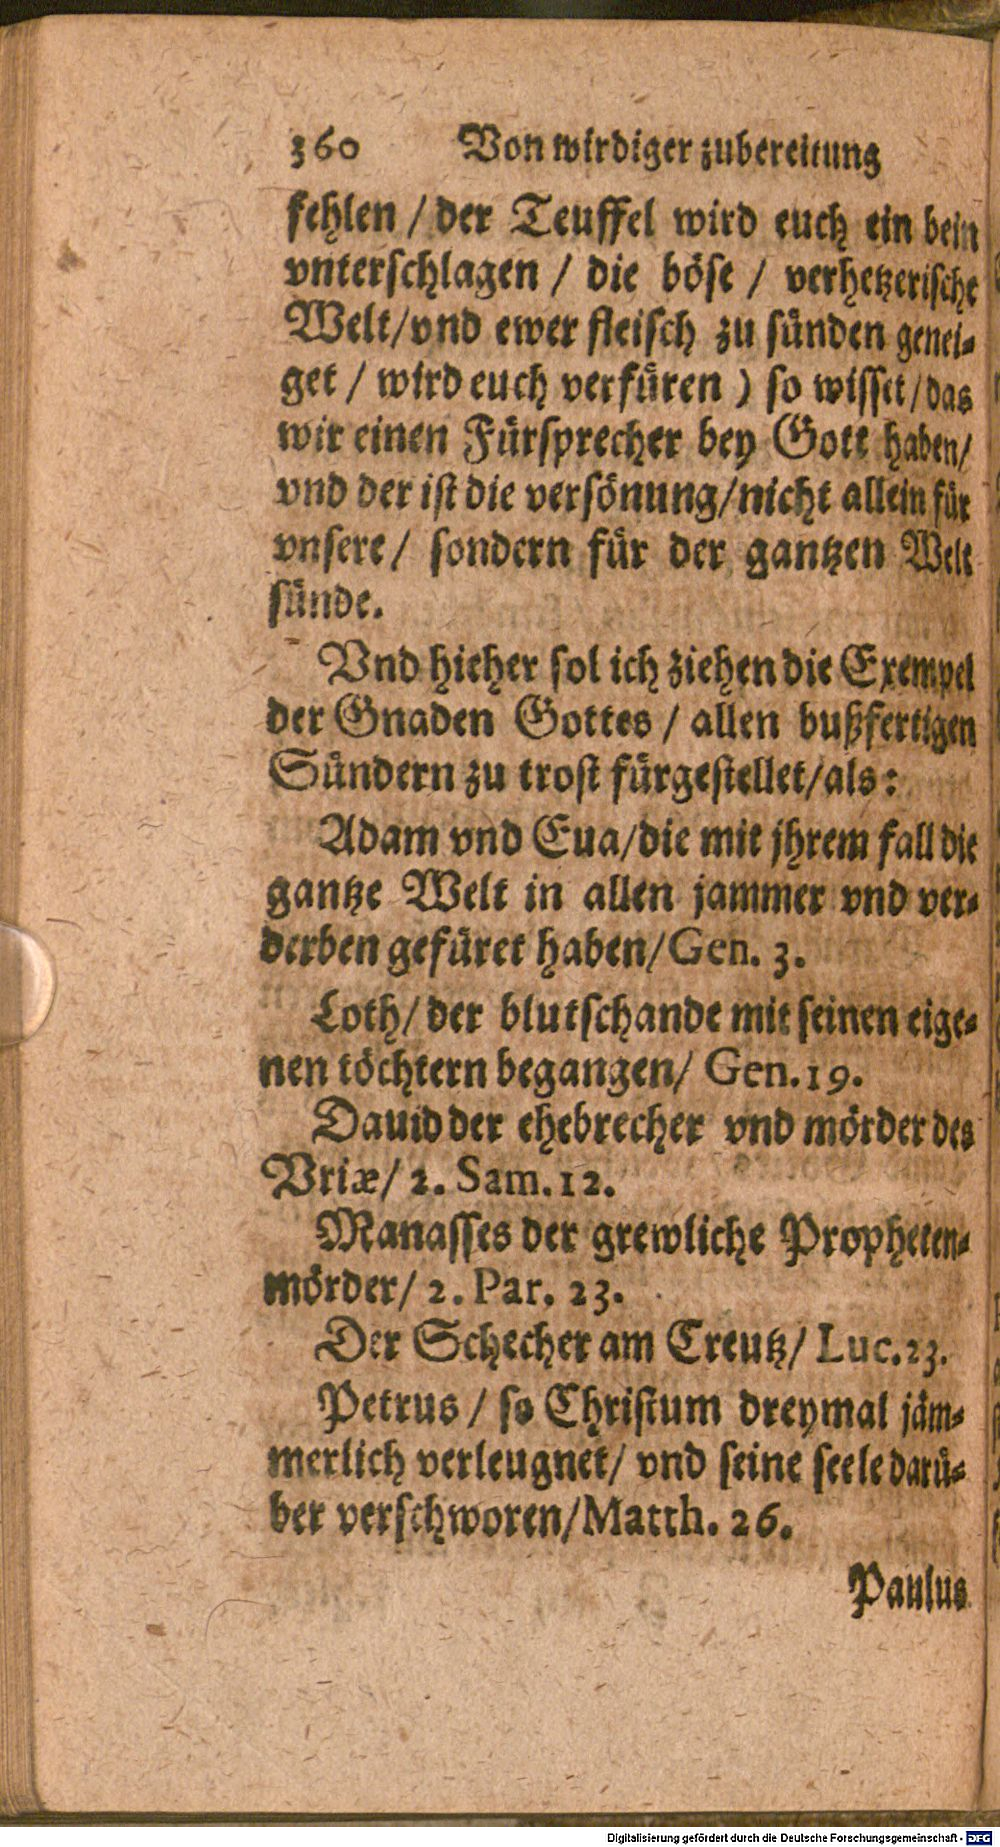 360 Von wirdiger zubereitung
fehlen / der Teuffel wird euch ein bein
vnterschlagen / die böse / verhetzerische
Welt/vnd ewer fleisch zu sünden genei-
get / wird euch verfüren ) so wisset/das
wir einen Fürsprecher bey Gott haben/
vnd der ist die versönung/nicht allein für
vnsere / sondern für der gantzen Welt
sünde.
Vnd hieher sol ich ziehen die Exempel
der Gnaden Gottes / allen bußfertigen
Sündern zu trost fürgestellet/als:
Adam vnd Eua/die mit jhrem fall die
gantze Welt in allen jammer vnd ver-
derben gefüret haben/Gen. 3.
Loth/ der blutschande mit seinen eige-
nen töchtern begangen/ Gen.19.
Dauid der ehebrecher vnd mörder des
Vriæ/ 2. Sam.12.
Manasses der grewliche Propheten-
mörder/ 2. Par. 23.
Der Schecher am Creutz/ Luc.23.
Petrus / so Christum dreymal jäm-
merlich verleugnet/ vnd seine seele darü-
ber verschworen/Matth. 26.
Paulus
Digitalisierung gefördert durch die Deutsche Forschungsgemeinschaft - DFG